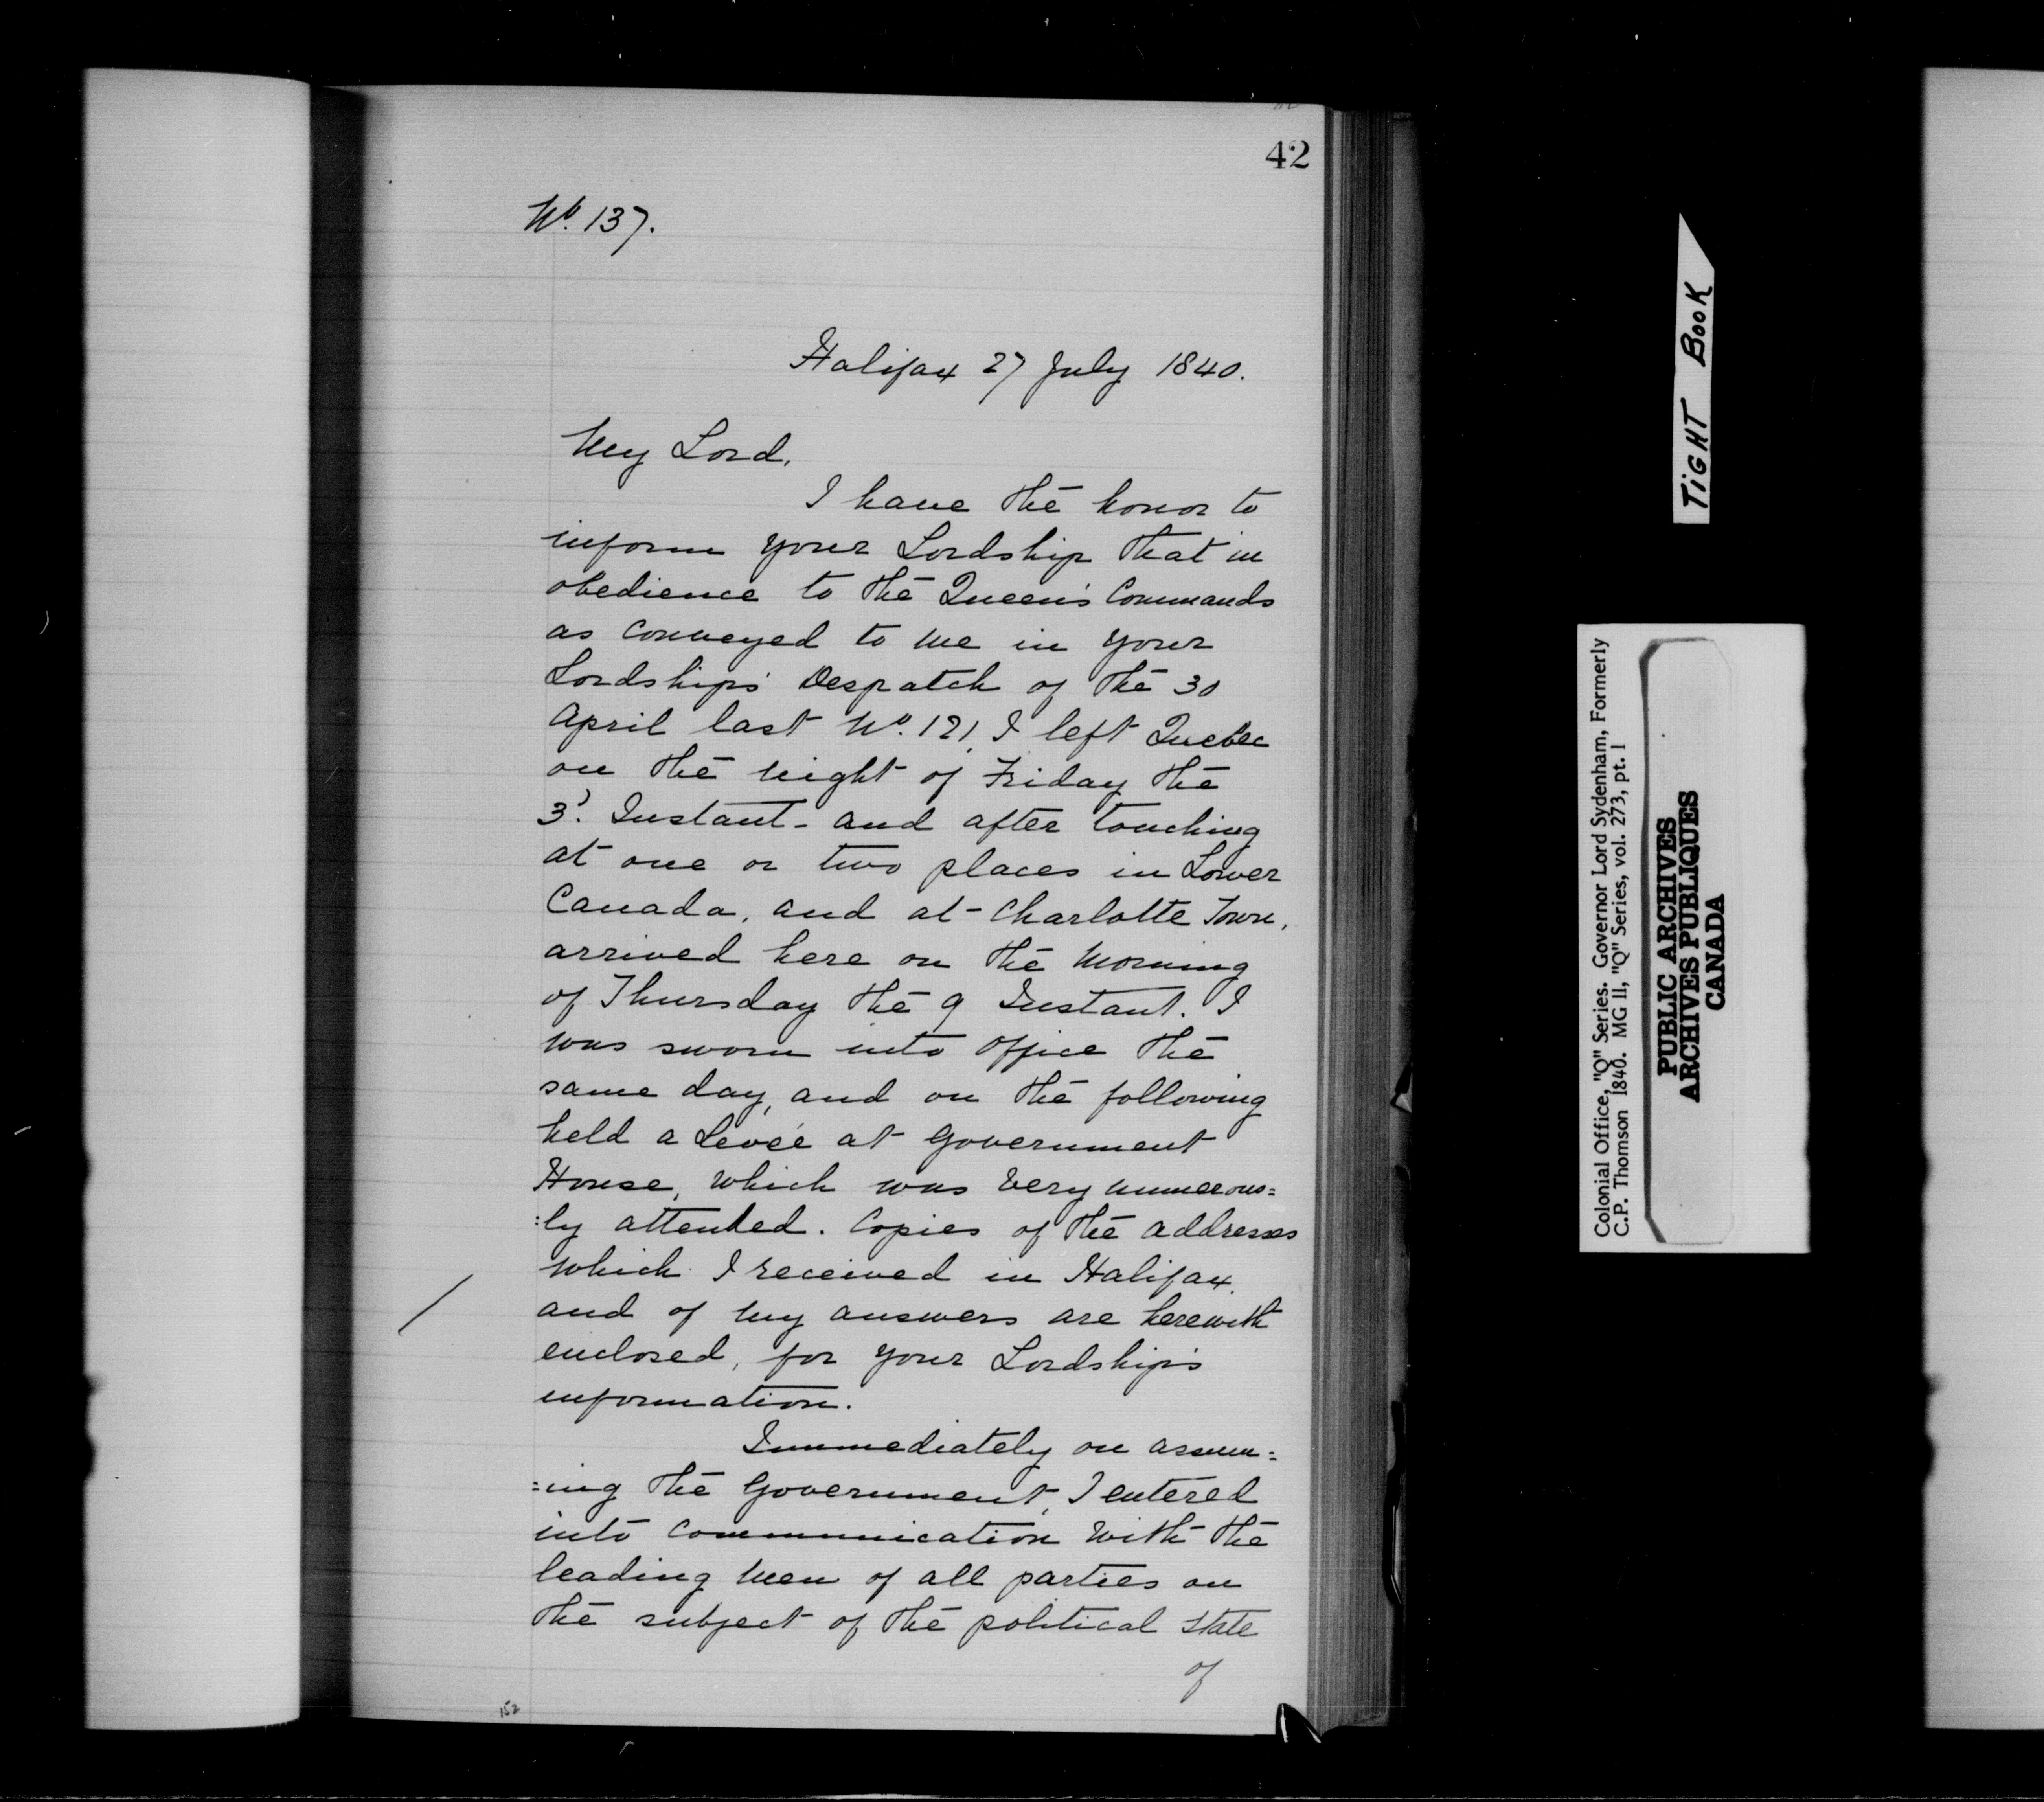 42
No. 137.
Halifax 27 July 1840.
My Lord,
I have the honor to
inform your Lordship that in
obedience to the Queen's Commands
as conveyed to me in your
Lordship's Despatch of the 30
April last No. 121, I left Quebec
on the night of Friday the
3d. Instant - and after touching
at one or two places in Lower
Canada, and at Charlotte Town,
arrived here on the Morning
of Thursday the 9 Instant. I
was sworn into Office the
same day, and on the following
held a Levée at Government
House, which was very numerous=
:ly attended. Copies of the addresses
which I received in Halifax,
and of my answers are herewith
enclosed, for your Lordship's
information.
Immediately on assum=
=ing the Government, I entered
into Communication with the
leading men of all parties on
the subject of the political state
of
152
TIGHT BOOK
Colonial Office, "Q" Series. Governor Lord Sydenham, Formerly
C.P. Thomson 1840. MG 11, "Q" Series, vol. 273, pt. 1
PUBLIC ARCHIVES
ARCHIVES PUBLIQUES
CANADA